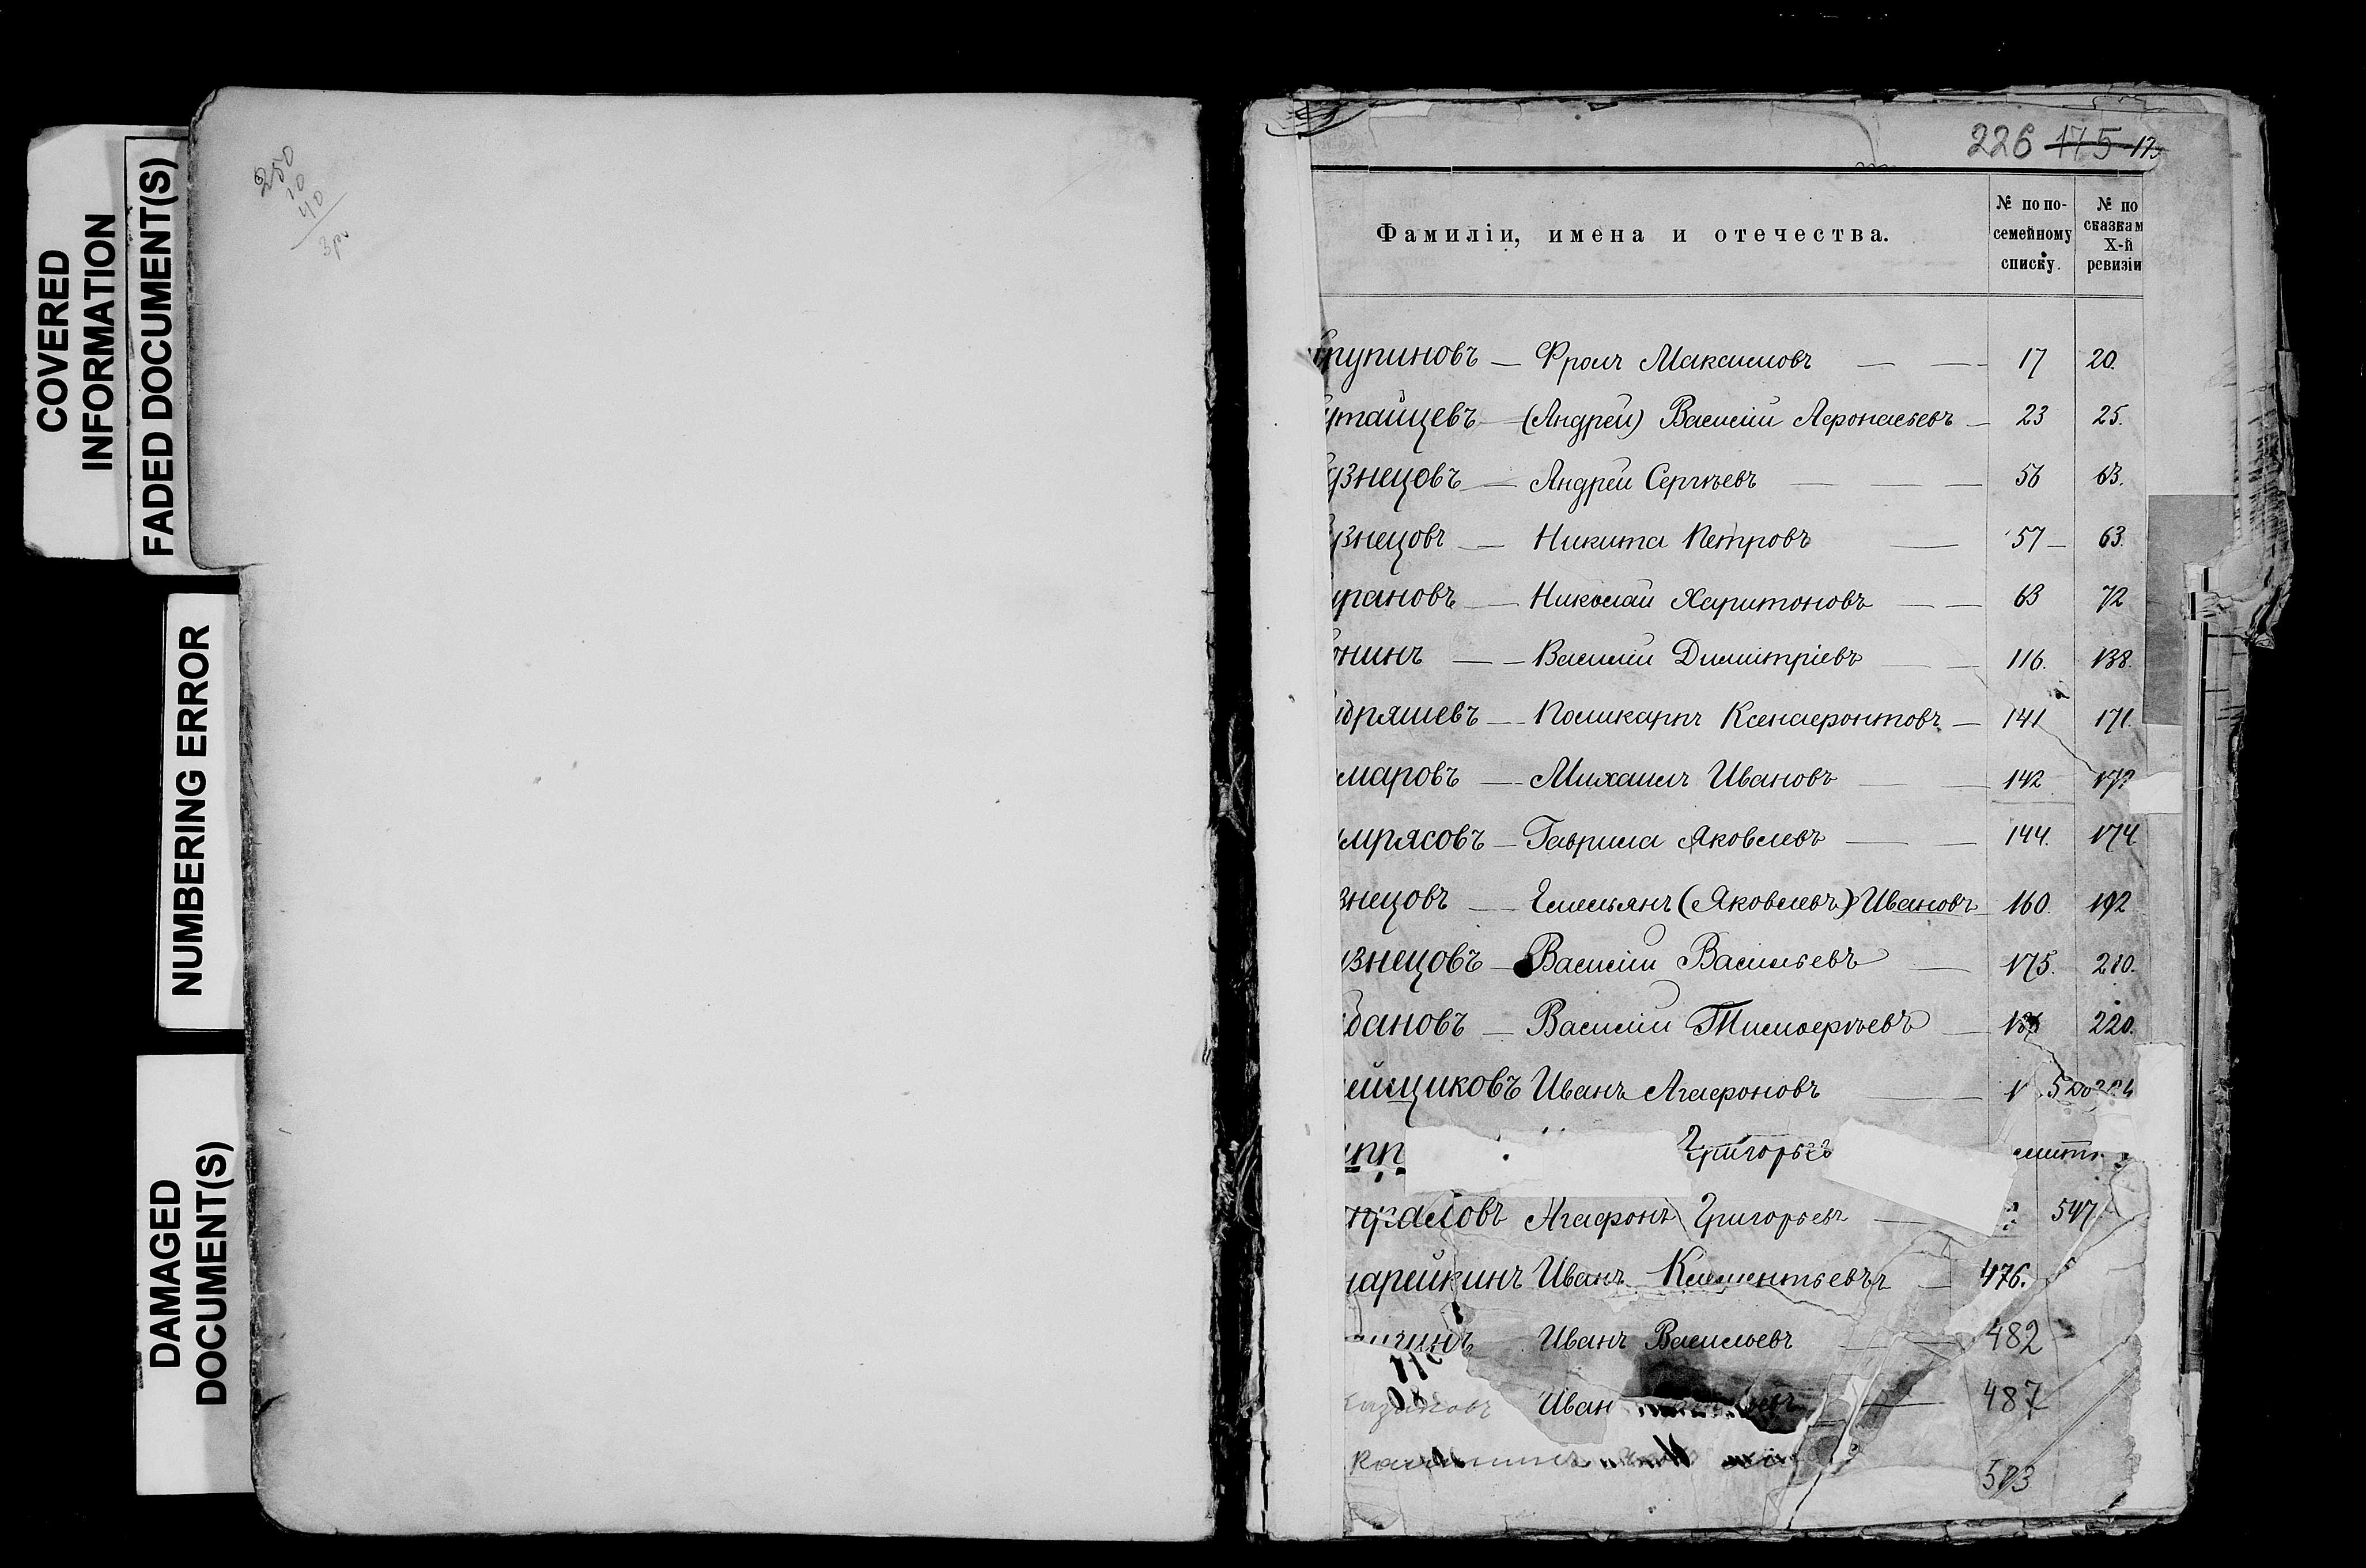 COVERED
INFORMATION
FADED DOCUMENT(S)
NUMBERING ERROR
DAMAGED
DOCUMENT(S)
250
10
40
3р
226 175 175
Фамиліи, имена и отечества.
№ по по-
семейному
списку.
№ по
сказкам
X-й
ревизіи
рупиновъ — Фролъ Максимовъ — — 17 20.
утайцевъ — (Андрей) Василій Афонасьевъ — 23 25.
узнецовъ — Андрей Сергѣевъ — — — 56 63.
узнецовъ — Никита Петровъ — 57 — 63.
урановъ — Николай Харитоновъ — — 63 72
онинъ — — Василій Димитріевъ — — 116. 138.
дряшевъ — Поликарпъ Ксенофонтовъ — 141 171.
маровъ — Михаилъ Ивановъ — — 142
мрясовъ — Гаврила Яковлевъ — — 144. 174
знецовъ — Емельянъ (Яковлевъ) Ивановъ 160. 192
знецовъ — Василій Васильевъ — 175. 210.
бановъ — Василій Тимоѳеѣевъ — 220.
ейщиковъ Иванъ Агафоновъ —
Григорьевъ
Агафонъ Григорьевъ — 547
арейкинъ Иванъ Климентьевъ — 476.
Иванъ Васильевъ — — 482
Иван — 487
513